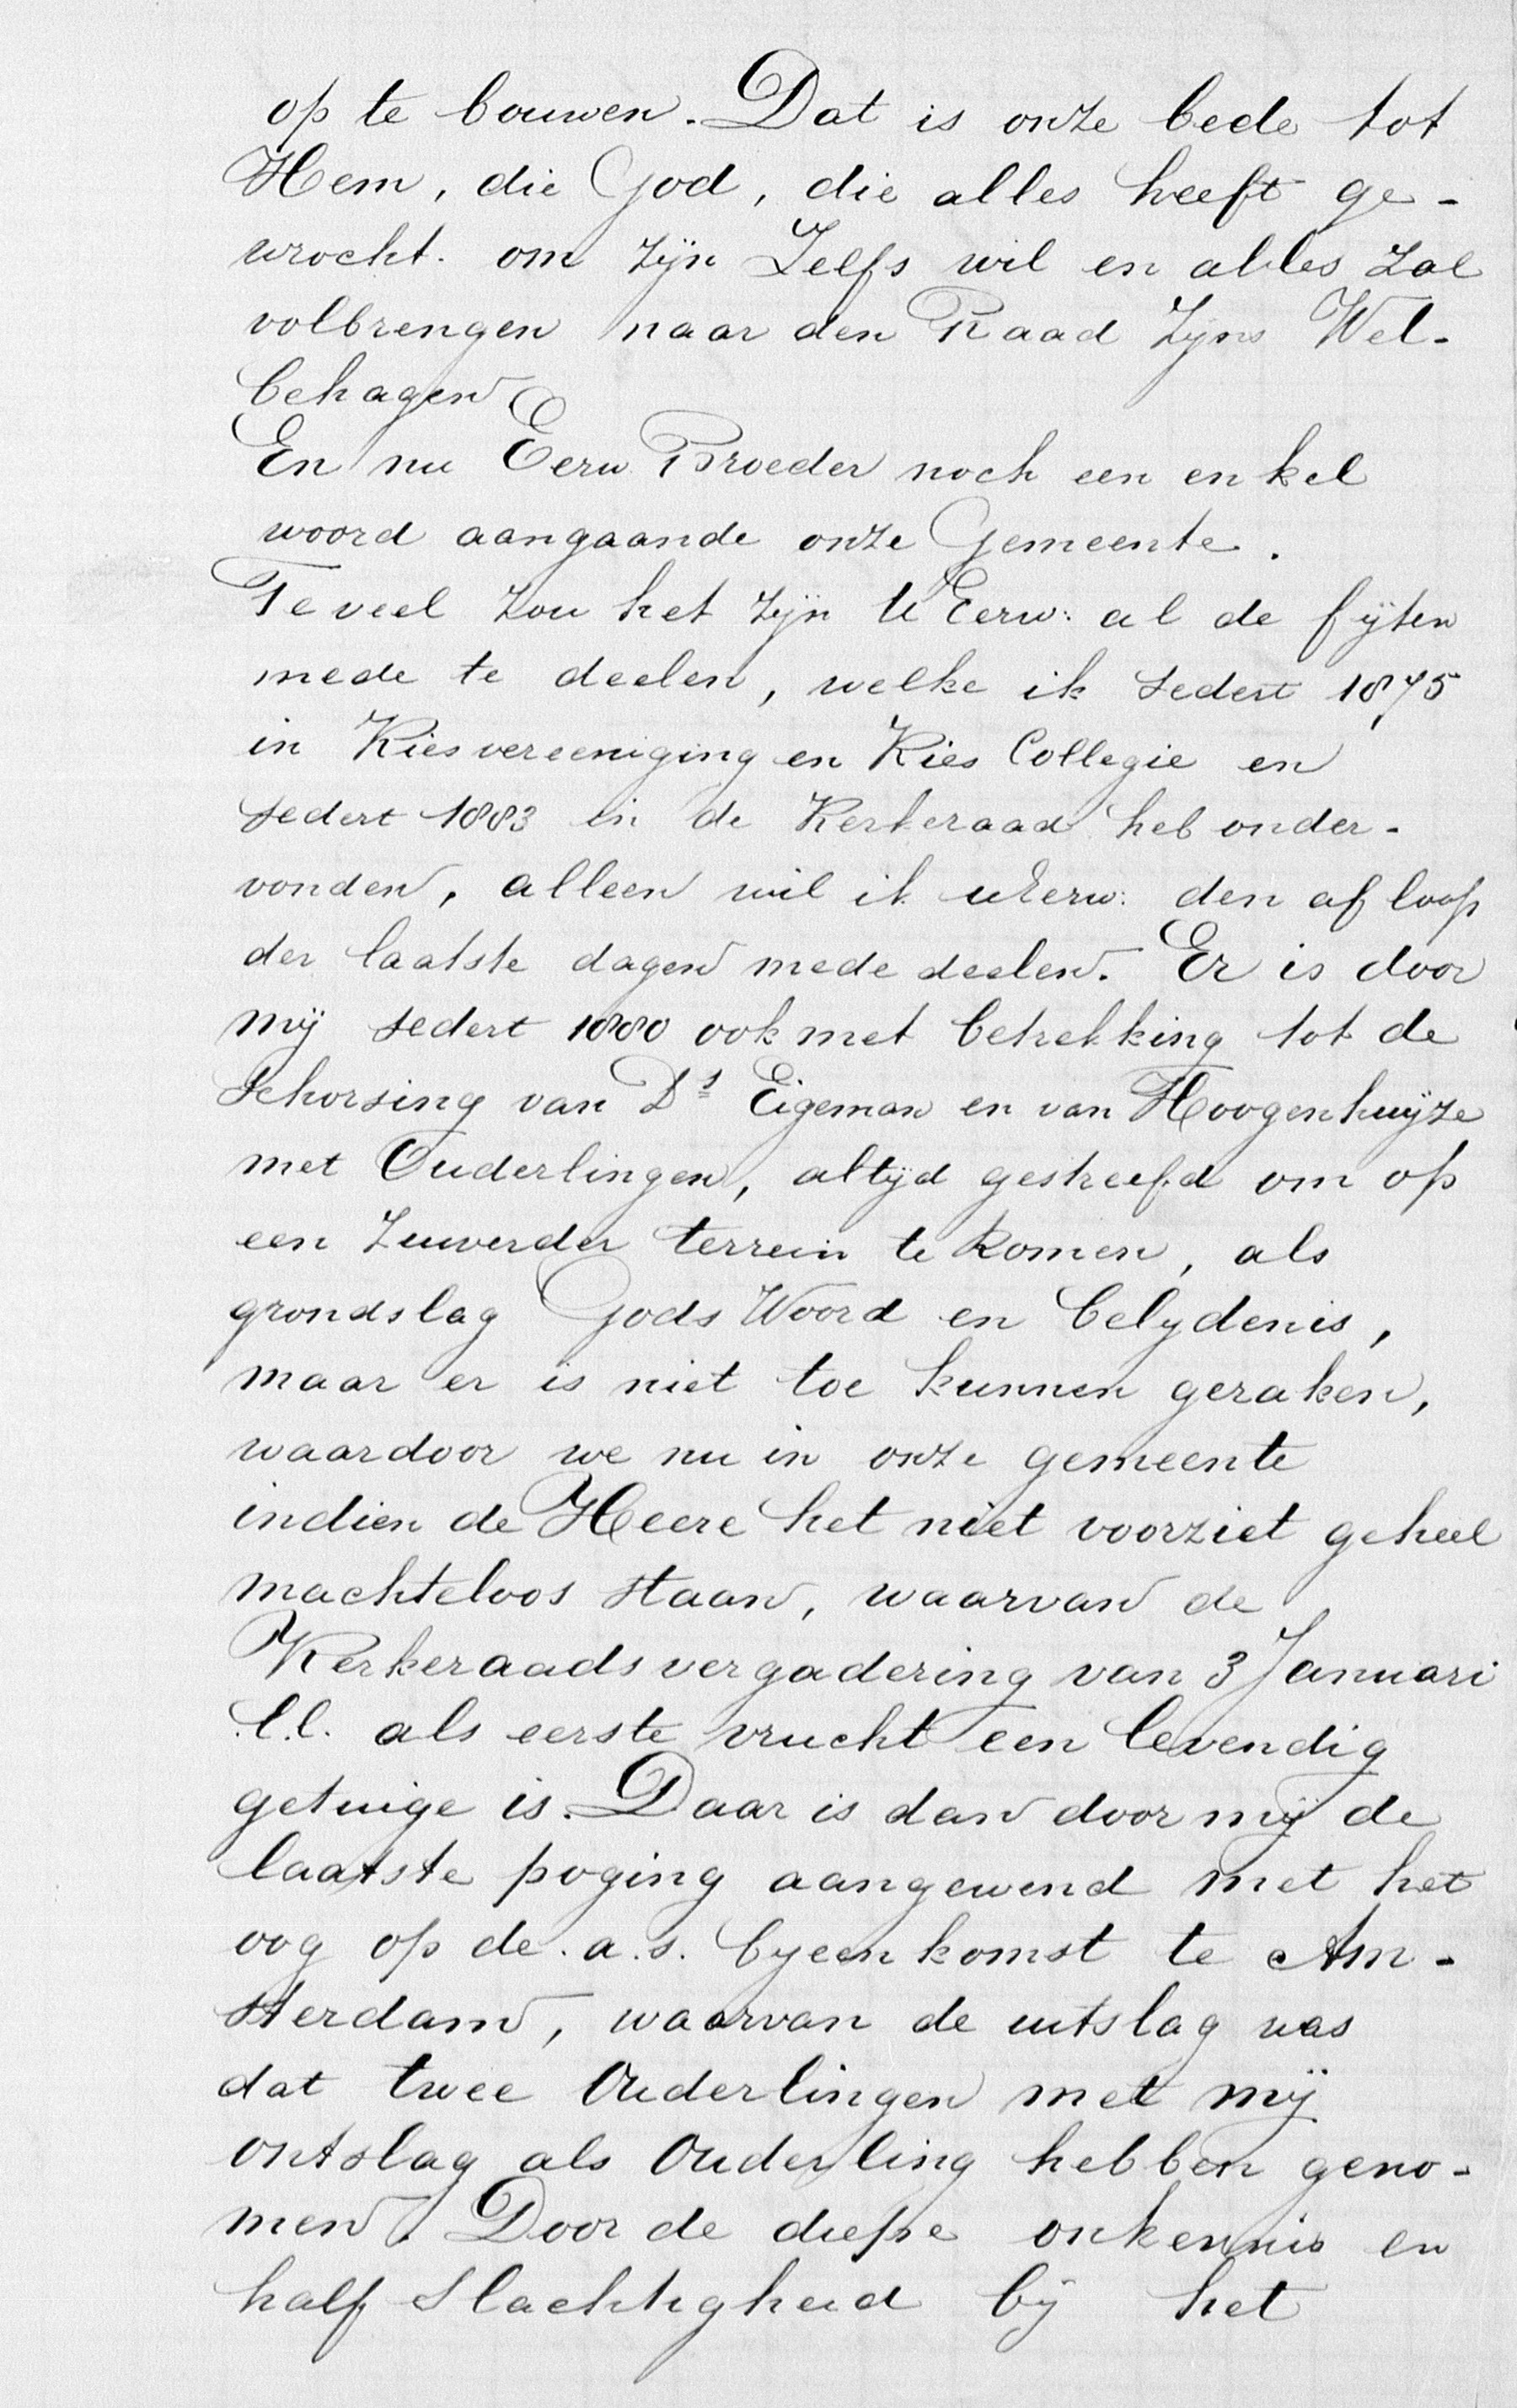 op te bouwen. Dat is onze bede tot
Hem, die God, die alles heeft ge-
wrocht. om zijn Zelfs wil en alles zal
volbrengen naar den Raad Zijns Wel-
behagen
En nu Eerw. Broeder noch een enkel
woord aangaande onze Gemeente.
Te veel zou het zijn U Eerw: al de fijten
mede te deelen, welke ik sedert 1875
in Kiesvereeniging en Kies Collegie en
sedert 1883 in de Kerkeraad heb onder-
vonden, alleen wil ik uEerw: den afloop
der laatste dagen mede deelen. Er is door
mij sedert 1880 ook met betrekking tot de
Schorsing van Ds Eigeman en van Hoogenhuijze
met Ouderlingen, altijd gestreefd om op
een Zuiverder terrein te komen, als
grondslag Gods Woord en belydenis,
maar er is niet toe kunnen geraken,
waardoor we nu in onze gemeente
indien de Heere het niet voorziet geheel
machteloos staan, waarvan de
Kerkeraads vergadering van 3 Januari
l.l. als eerste vrucht een levendig
getuige is. Daar is dan door mij de
laatste poging aangewend met het
oog op de a.s. byeenkomst te Am-
sterdam, waarvan de uitslag was
dat twee Ouderlingen met mij
ontslag als Ouderling hebben geno-
men. Door de diepe onkennis en
half slachtigheid bij het